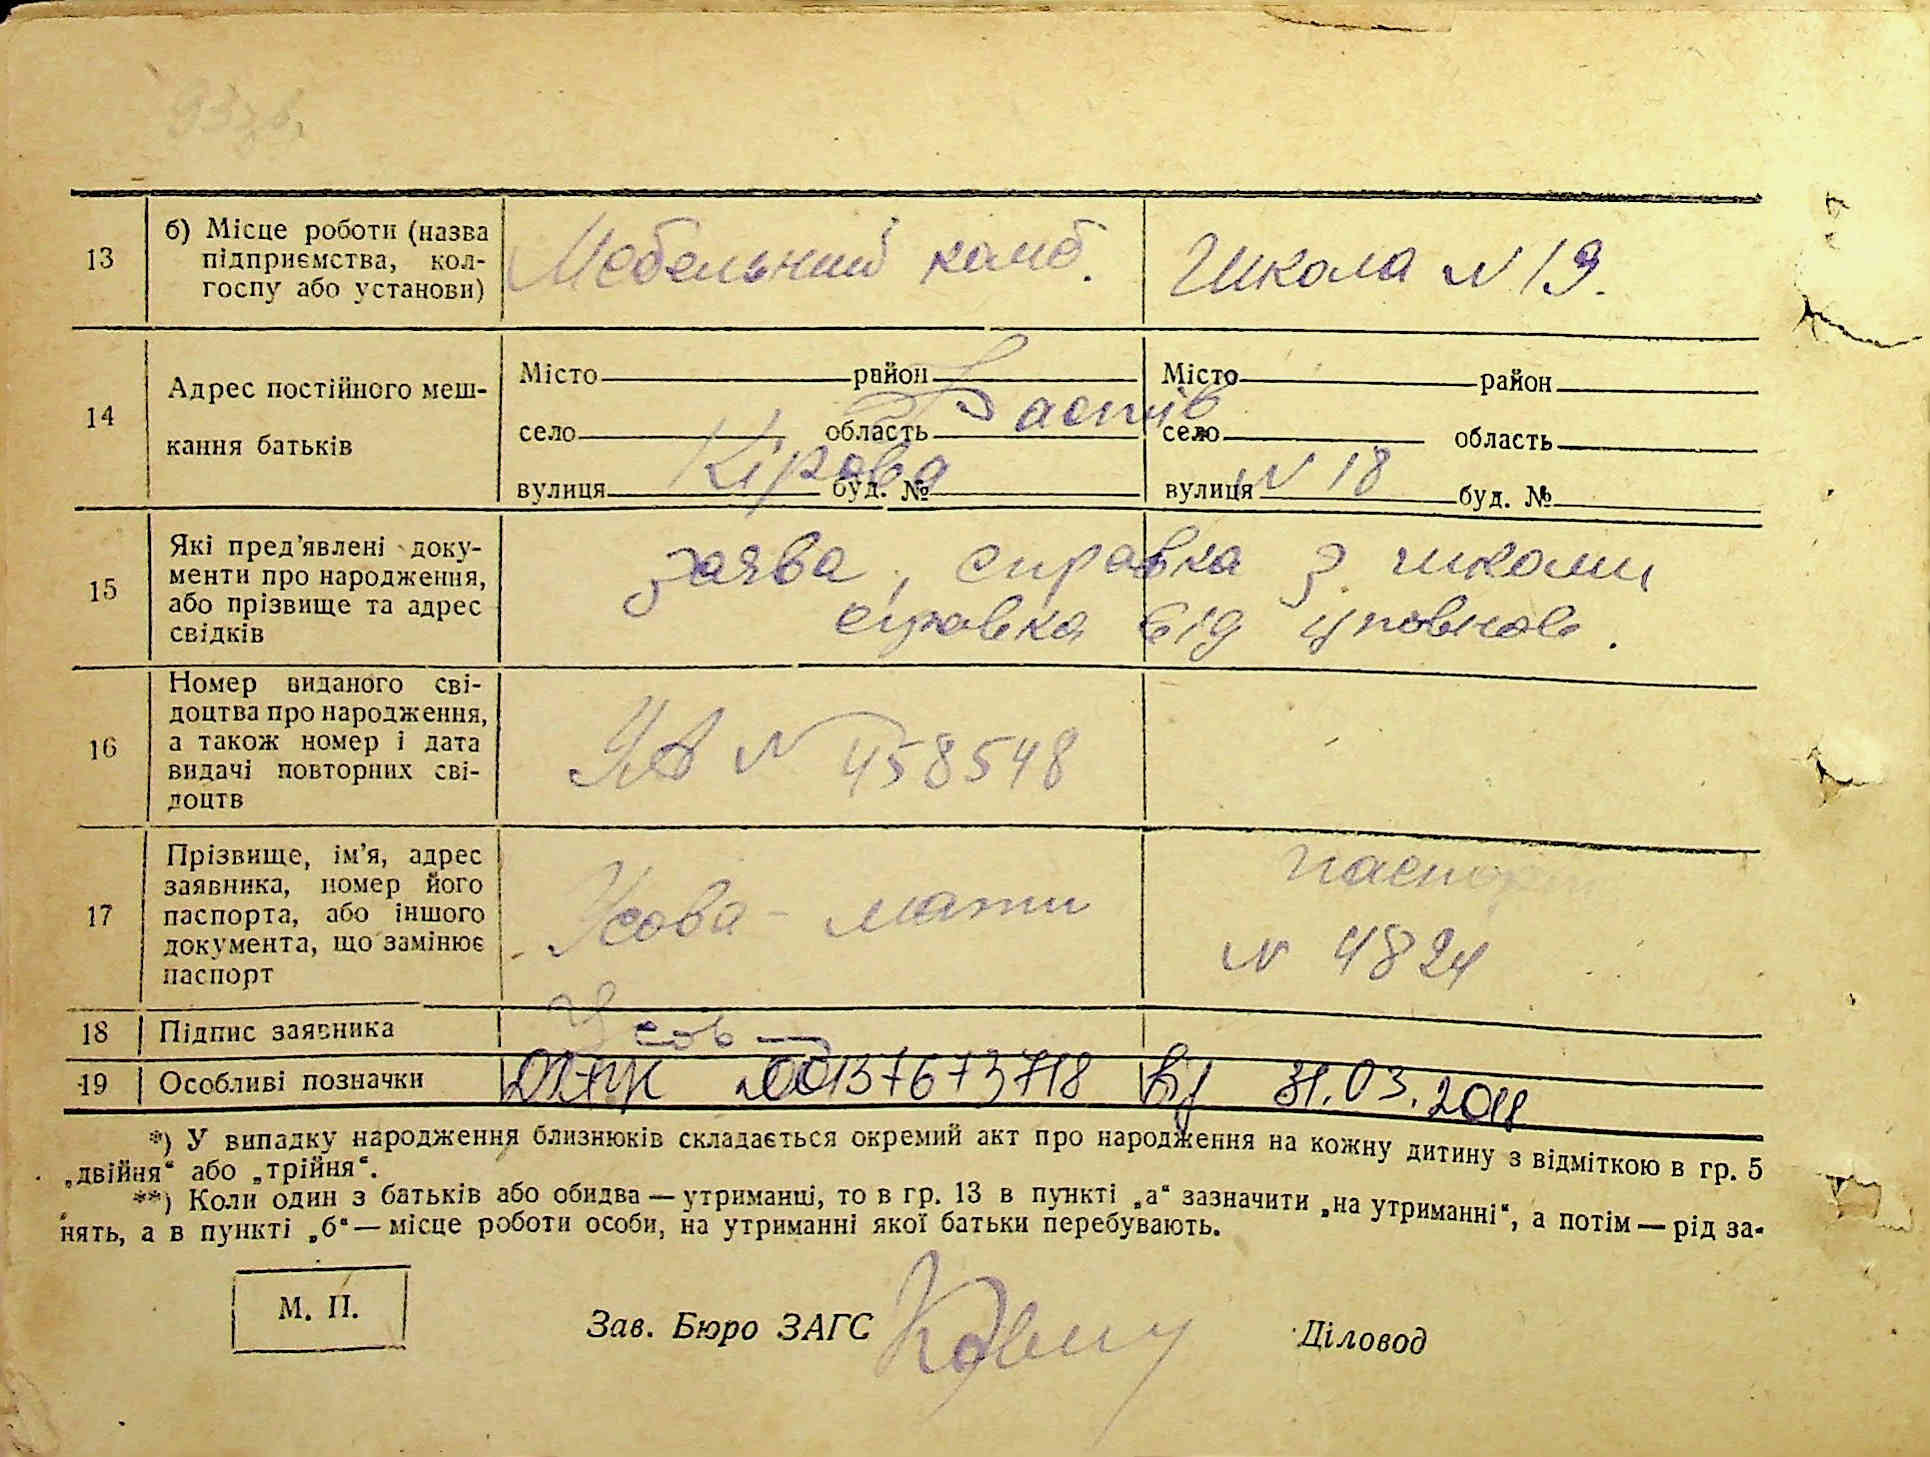 13
б) Місце роботи (назва
підприємства, кол-
госпу або установи)
Мебельний комб.
Школа N 19.
14
Адрес постійного меш-
кання батьків
Місто район
Фастів
село область
Кірова
вулиця буд. №
Місто район
село область
N 18
вулиця буд. №
15
Які пред'явлені доку-
менти про народження,
або прізвище та адрес
свідків
заява, справка з школи
справка від уповнов.
16
Номер виданого сві-
доцтва про народження,
а також номер і дата
видачі повторних сві-
доцтв
УА N 458548
17
Прізвище, ім'я, адрес
заявника, номер його
паспорта, або іншого
документа, що замінює
паспорт
Усова - мати
паспорт
N 4824
18
Підпис заявника
Усов
19
Особливі позначки
00137673718 від 31.03.2011
*) У випадку народження близнюків складається окремий акт про народження на кожну дитину з відміткою в гр. 5
„двійня“ або „трійня“.
**) Коли один з батьків або обидва — утриманці, то в гр. 13 в пункті „а“ зазначити „на утриманні“, а потім — рід за-
нять, а в пункті „б“ — місце роботи особи, на утриманні якої батьки перебувають.
М. П.
Зав. Бюро ЗАГС
Діловод